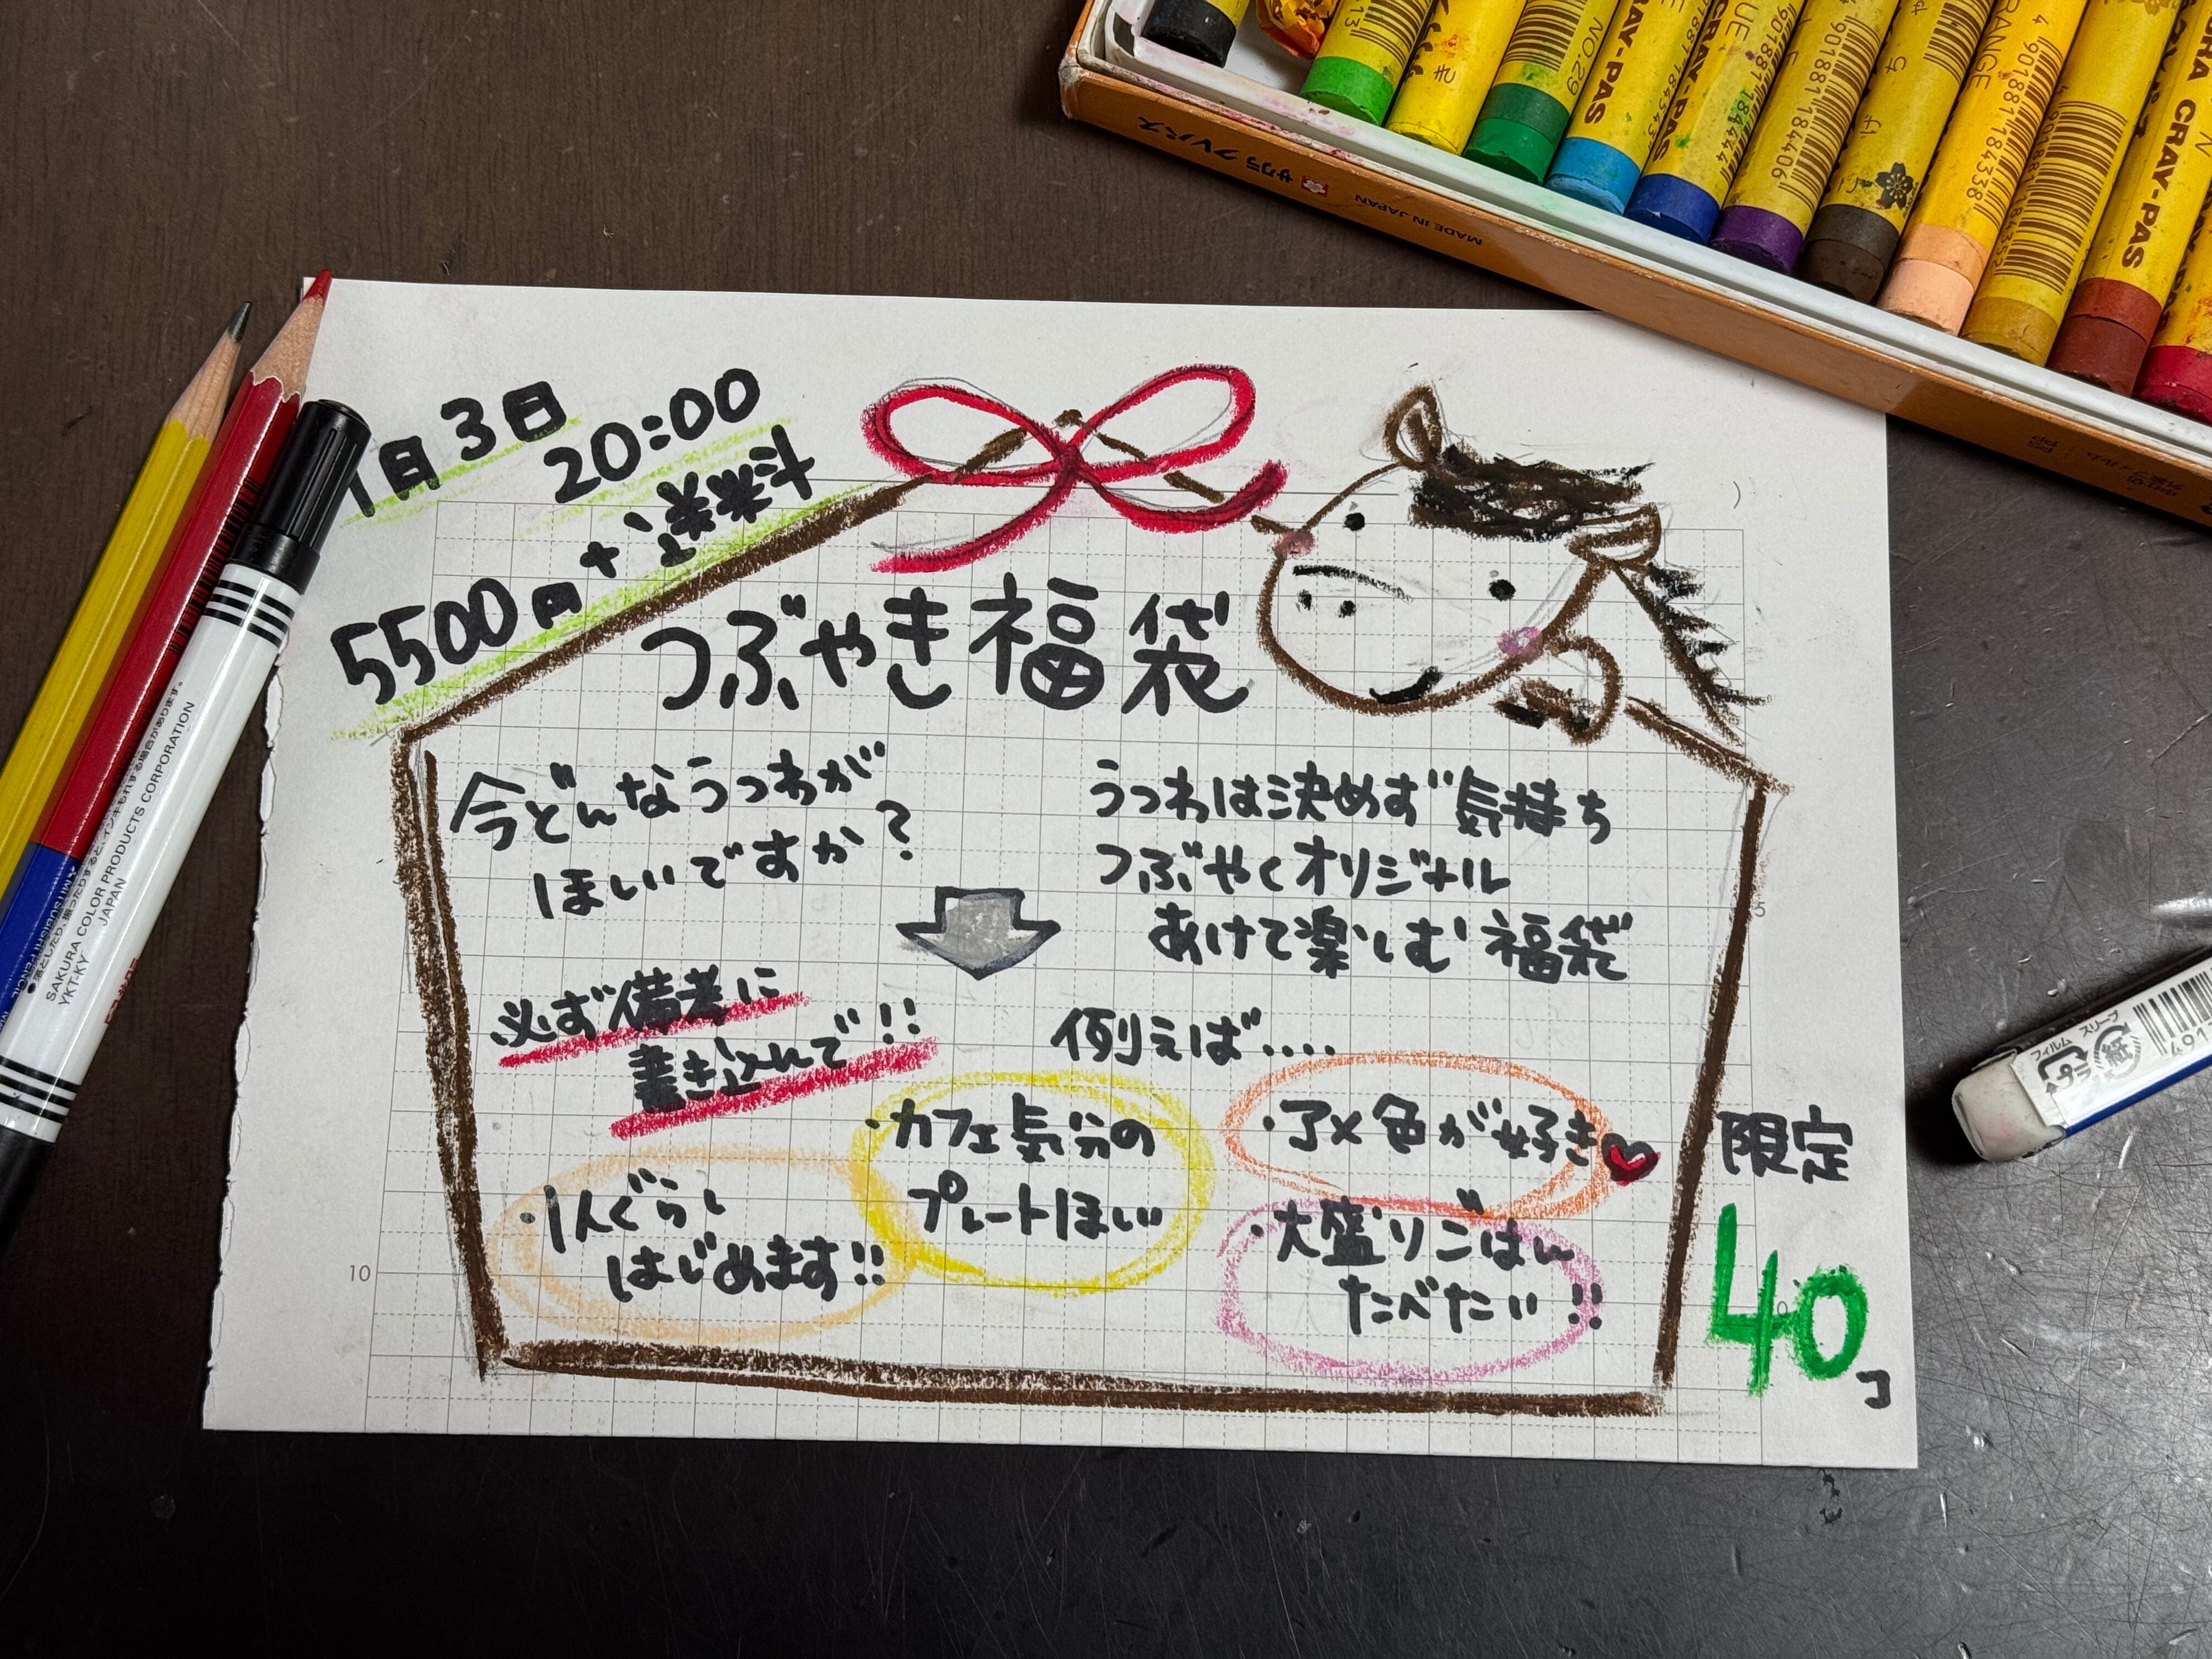 1月3日
20:00
5500円+送料
つぶやき福袋
今どんなうつわが
ほしいですか?
必ず備考に
書き込んで!!
うつわは決めず気持ち
つぶやくオリジナル
あけて楽しむ福袋
例えば....
・1人ぐらし
はじめます!!
・カフェ気分の
プレートほしい
・アメ色が好き
・大盛りごはん
たべたい!!
限定
40コ
10
5
サクラクレパス
MADE IN JAPAN
NO.29
CRAY-PAS
CRAY-PAS
CRAY-PAS
SAKURA COLOR PRODUCTS CORPORATION
YKT-KY JAPAN
フィルム
スリーブ
プラ
紙